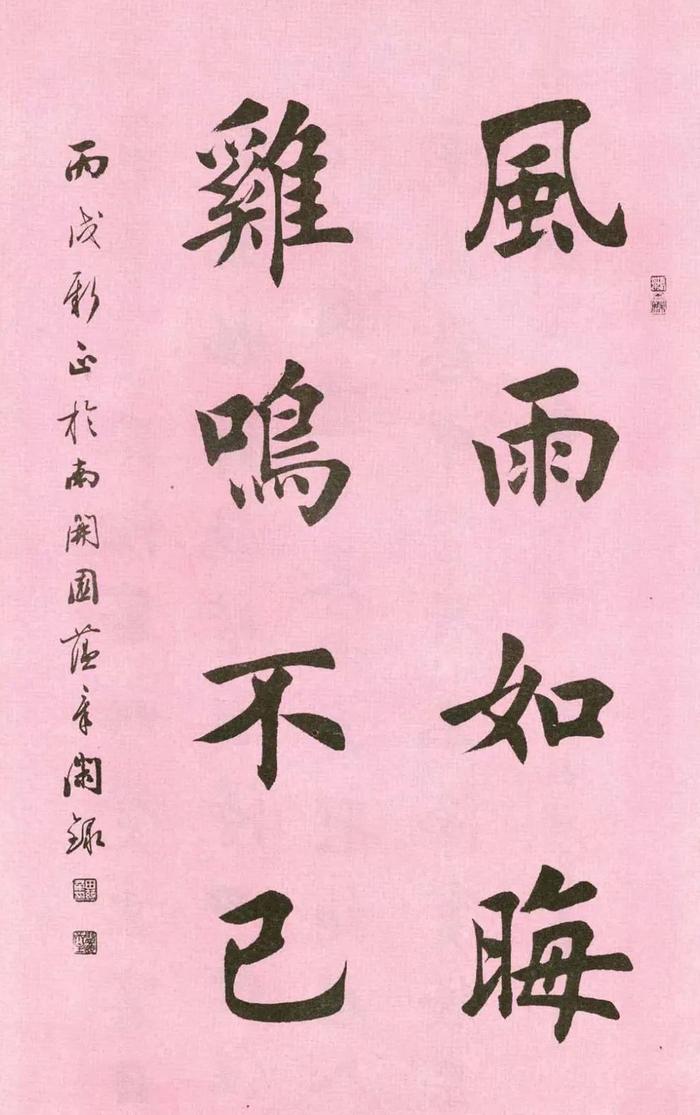 風雨如晦
雞鳴不已
丙戌新正於南開園蘊章閣錄